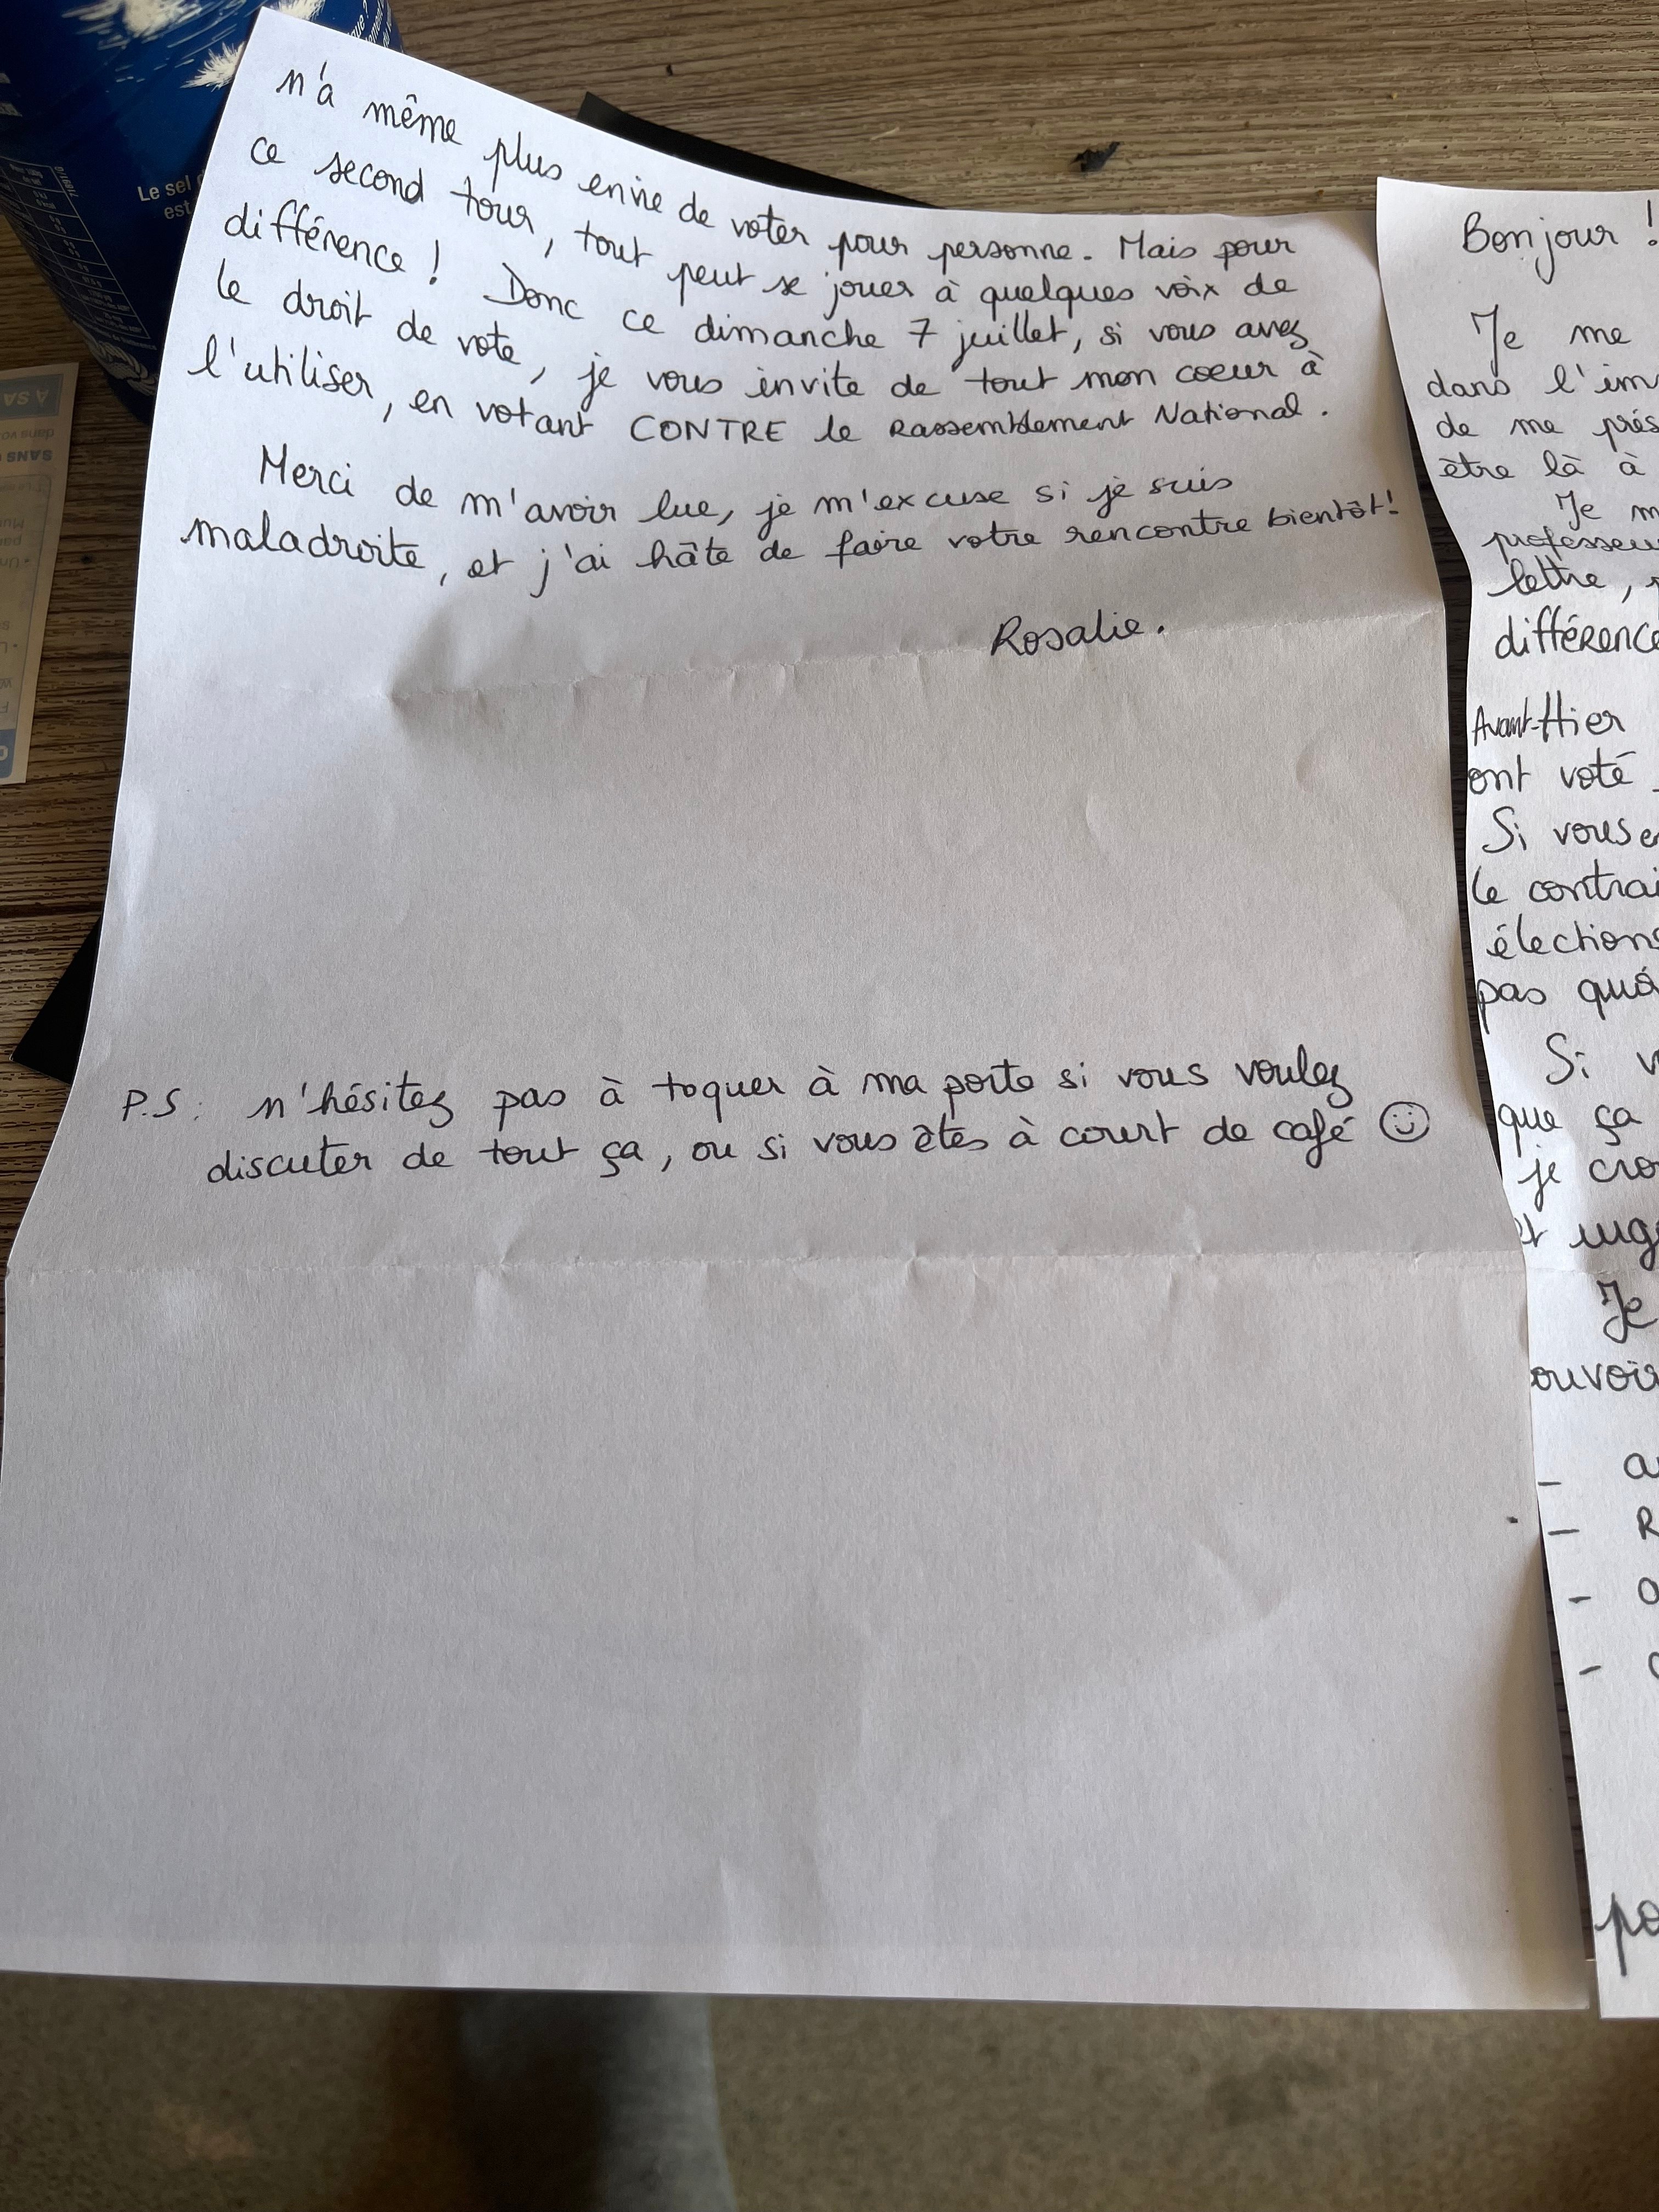 n'a même plus envie de voter pour personne. Mais pour
ce second tour, tout peut se jouer à quelques voix de
différence ! Donc ce dimanche 7 juillet, si vous avez
le droit de vote, je vous invite de tout mon coeur à
l'utiliser, en votant CONTRE le Rassemblement National.
Merci de m'avoir lue, je m'excuse si je suis
maladroite, et j'ai hâte de faire votre rencontre bientôt!
Rosalie.
P.S: n'hésitez pas à toquer à ma porte si vous voulez
discuter de tout ça, ou si vous êtes à court de café
Bonjour !
Je me
dans l'im
de me prés
être là à
Je m
professeu
lettre,
différence
Avant-Hier
ont voté
Si vous e
le contrai
élections
pas qu'à
Si v
que ça
je cro
et
Je
ouvoir
Le sel
est